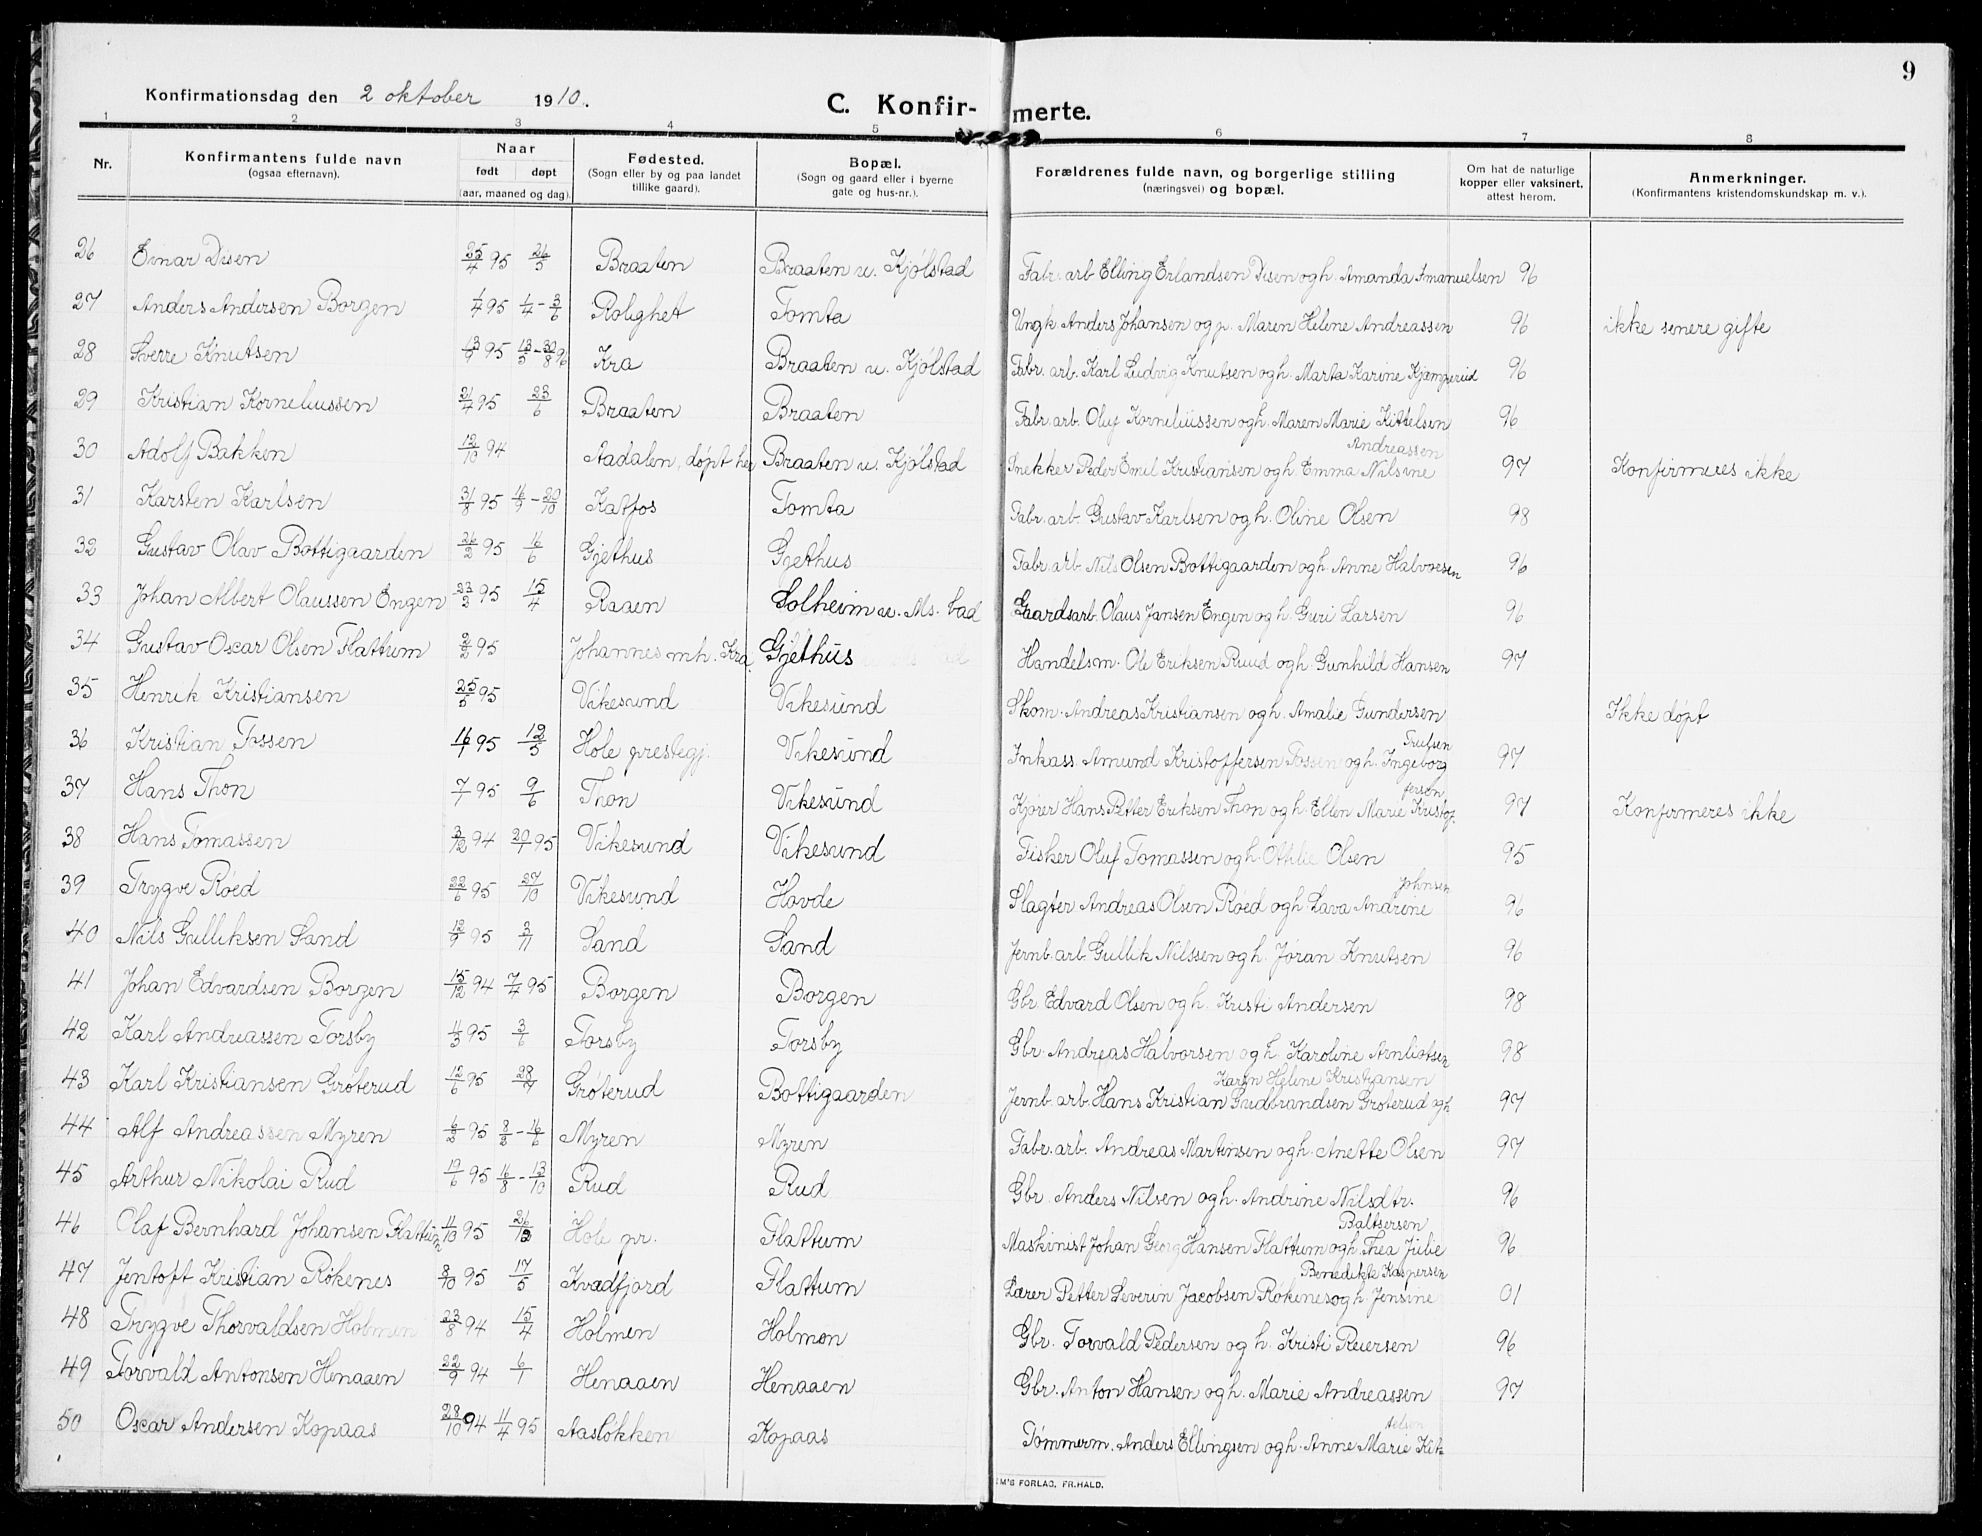 9
Konfirmationsdag den 2 oktober 1910.
C. Konfirmerte.
1 2 3 4 5 6 7 8
Nr. Konfirmantens fulde navn (ogsaa efternavn). Naar født døpt (aar, maaned og dag). Fødested. (Sogn eller by og paa landet tillike gaard). Bopæl. (Sogn og gaard eller i byerne gate og hus-nr.). Forældrenes fulde navn, og borgerlige stilling (næringsvei) og bopæl. Om hat de naturlige kopper eller vaksinert, attest herom. Anmerkninger. (Konfirmantens kristendomskundskap m. v.).
26 Einar Disen 25/4 95 26/5 Braaten Braaten u. Kjølstad Fabr. arb Elling Erlandsen Disen og h. Amanda Imanuelsen 96
27 Anders Andersen Borgen 1/4 95 1/4 - 3/6 Rolighet Tomta Ungk Anders Johansen og p. Maren Helene Andreassen 96 ikke senere gifte
28 Sverre Knutsen 95 Kra Braaten u. Kjølstad Fabr. arb. Karl Ludvig Knutsen og h. Marta Karine Kjæmperud 96
29 Kristian Korneliussen 21/4 95 23/6 Braaten Braaten Fabr. arb. Oluf Korneliussen og h. Maren Marie Kittelsen 96
30 Adolf Bakken 12/10 94 Aadalen, døpt her Braaten u. Kjølstad Snekker Peder Emil Kristiansen og h Emma Nilsine Andreassen 97 Konfirmeres ikke
31 Karsten Karlsen 31/8 95 16/9 - 20/10 Katfos Tomta Fabr. arb. Gustav Karlsen og h. Oline Olsen 98
32 Gustav Olav Bottigaarden 26/2 95 16/6 Gjethus Gjethus Fabr. arb. Nils Olsen Bottigaarden og h. Anne Halvorsen 96
33 Johan Albert Olaussen Engen 23/2 95 15/4 Raaen Solheim u. Ms. bad Gaardsarb. Olaus Jansen Engen og h. Guri Larsen 96
34 Gustav Oscar Olsen Flattum 2/2 95 Johannes mh. Kra Gjethus Handelsm. Ole Eriksen Ruud og h. Gunhild Hansen 97
35 Henrik Kristiansen 25/5 95 Vikesund Vikesund Skom. Andreas Kristiansen og h. Amalie Gundersen Ikke døpt
36 Kristian Fossen 16/1 95 12/5 Hole prestegj. Vikesund Inkass. Amund Kristoffersen Fossen og h. Ingeborg Trulsen 97
37 Hans Thon 7/1 95 9/6 Thon Vikesund Kjører Hans Petter Eriksen Thon og h Ellen Marie Kristoffersen 97 Konfirmeres ikke
38 Hans Tomassen 3/12 94 20/1 95 Vikesund Vikesund Fisker Oluf Tomassen og h. Othlie Olsen 95
39 Trygve Røed 22/6 95 27/10 Vikesund Hovde Slagter Andreas Olsen Røed og h. Lava Andrine Johnsen 96
40 Nils Gulliksen Sand 12/9 95 3/11 Sand Sand Jernb. arb. Gullik Nilssen og h. Jøran Knutsen 96
41 Johan Edvardsen Borgen 15/12 94 7/4 95 Borgen Borgen Gbr Edvard Olsen og h. Kristi Andersen 98
42 Karl Andreassen Torsby 11/3 95 3/6 Torsby Torsby Gbr. Andreas Halvorsen og h Karoline Arnliotsen 98
43 Karl Kristiansen Grøterud 12/6 95 28/7 Grøterud Bottigaarden Jernb. arb. Hans Kristian Gudbrandsen Grøterud og h Karen Helene Kristiansen 97
44 Alf Andreassen Myren 6/2 95 8/2 - 16/6 Myren Myren Fabr. arb. Andreas Martinsen og h. Anette Olsen 97
45 Arthur Nikolai Rud 19/6 95 16/8 - 13/10 Rud Rud Gbr. Anders Nilsen og h. Andrine Nilsdtr. 96
46 Olaf Bernhard Johansen Flattum 11/10 95 26/12 Hole pr. Flattum Maskinist Johan Georg Hansen Flattum og h. Thea Julie Baltsersen 96
47 Jentoft Kristian Røkenes 8/10 95 17/5 Kvædfjord Flattum Lærer Petter Severin Jacobsen Røkenes og h. Jensine Benedikte Kaspersen 01
48 Trygve Thorvaldsen Holmen 23/8 94 15/4 Holmen Holmen Gbr. Torvald Pedersen og h. Kristi Reiersen 96
49 Torvald Antonsen Henaaen 22/9 94 6/1 Henaaen Henaaen Gbr. Anton Hansen og h. Marie Andreassen 97
50 Oscar Andersen Kopaas 28/10 94 11/4 95 Aasløkken Kopaas Tømmerm. Anders Ellingsen og h. Anne Marie Kittelsen
M'S FORLAG, FR.HALD.